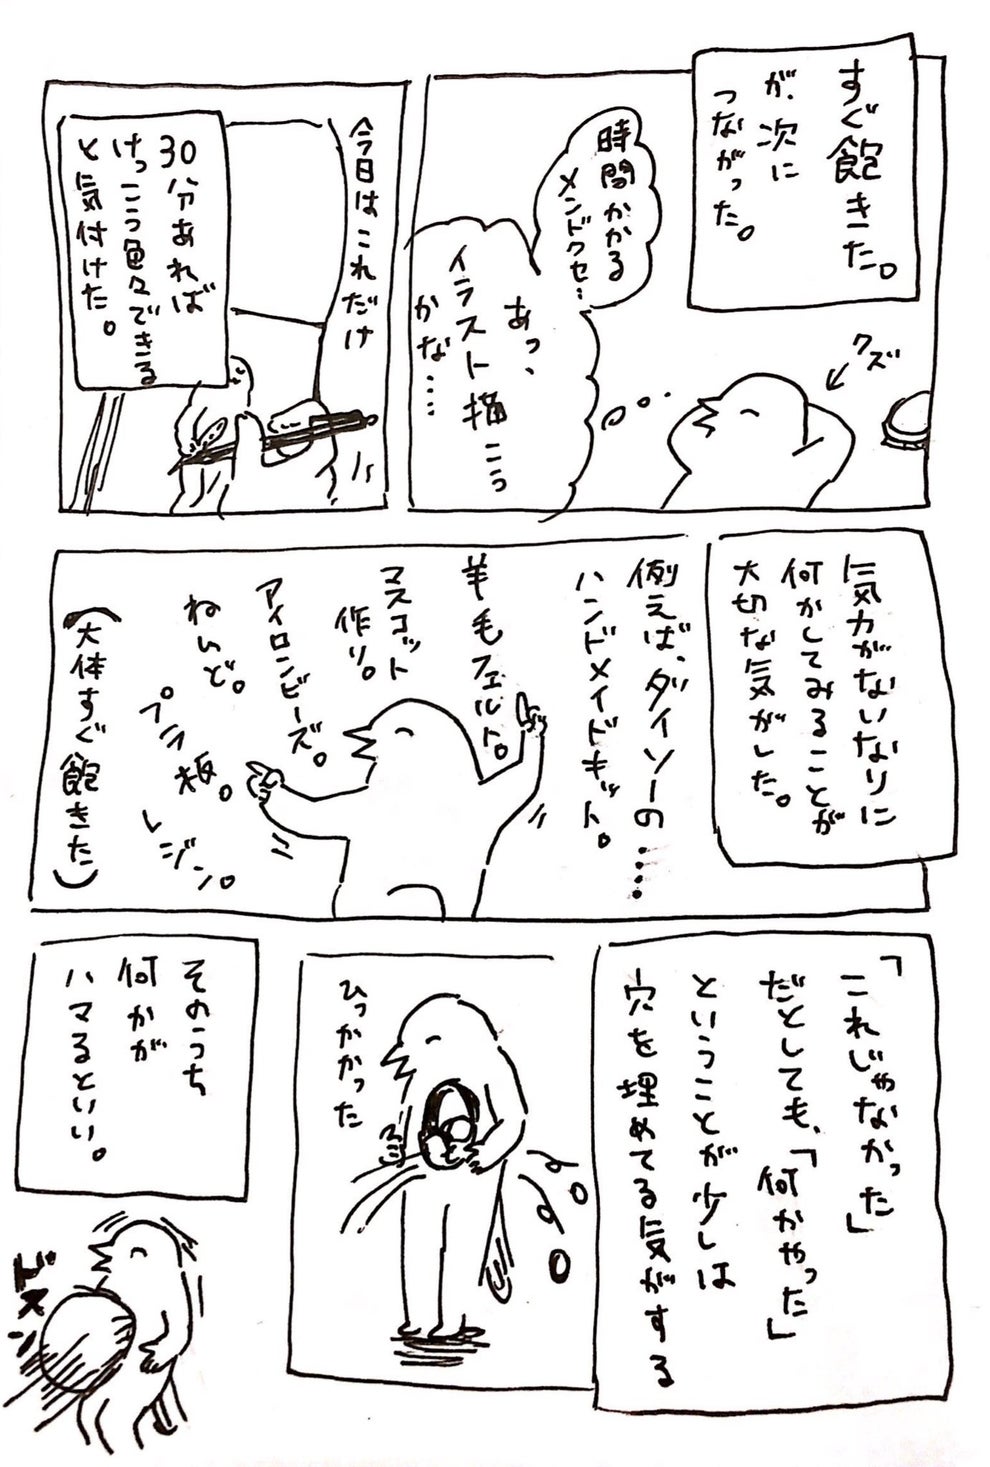 すぐ飽きた。
が、次に
つながった。
クズ
時間かかる
メンドクセ…
あっ、
イラスト描こう
かな……
今日はこれだけ
30分あれば
けっこう色々できる
と気付けた。
気力がないなりに
何かしてみることが
大切な気がした。
例えば、ダイソーの……
ハンドメイドキット。
羊毛フェルト。
マスコット
作り。
アイロンビーズ。
ねんど。
プラ板。
レジン。
(大体すぐ飽きた)
「これじゃなかった」
だとしても、「何かやった」
ということが少しは
穴を埋めてる気がする
ひっかかった
そのうち
何かが
ハマるといい。